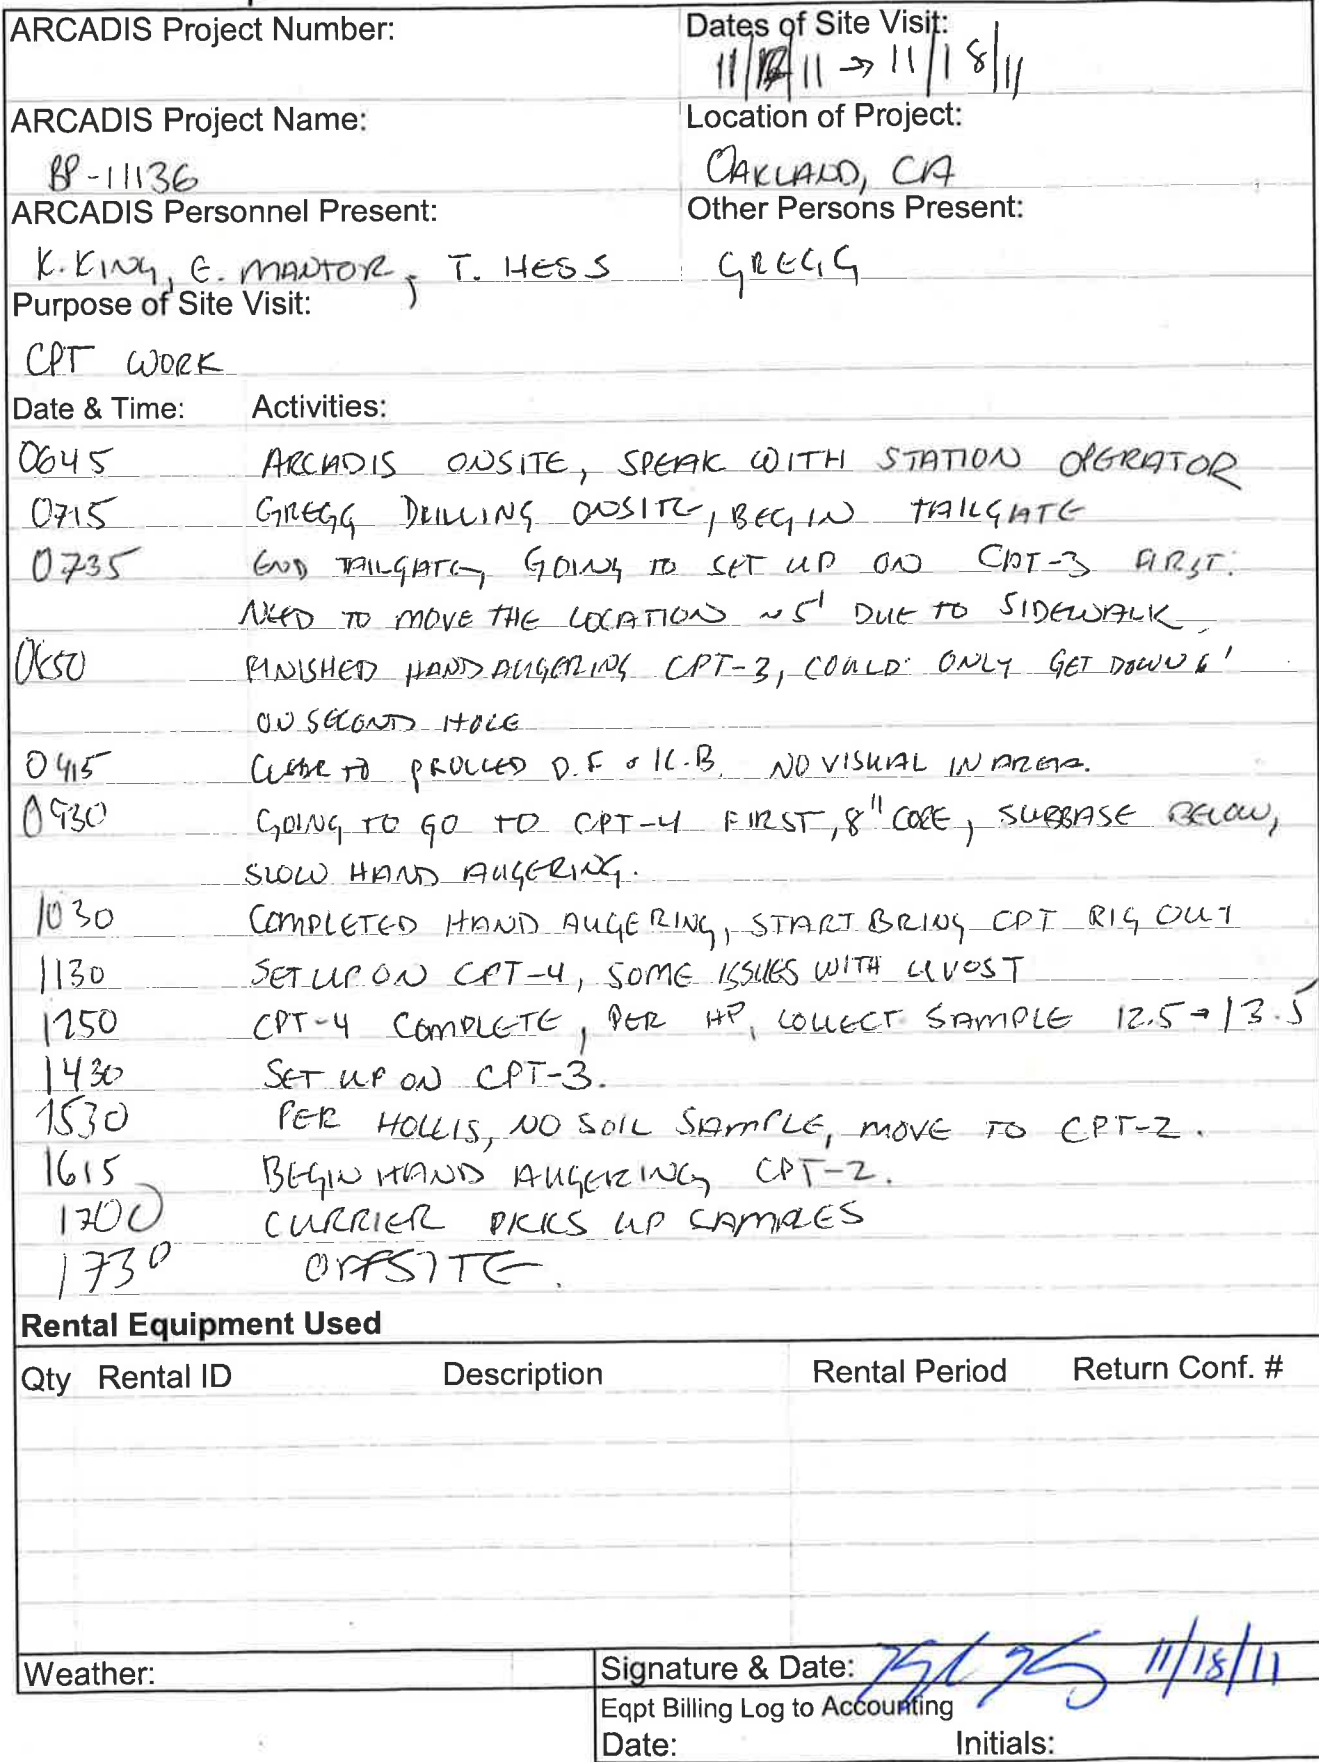 ARCADIS Project Number: Dates of Site Visit:
11/ /11 → 11/18/11
ARCADIS Project Name: Location of Project:
BP-11136 OAKLAND, CA
ARCADIS Personnel Present: Other Persons Present:
K. KING, E. MANTOR, T. HESS GREGG
Purpose of Site Visit:
CPT WORK
Date & Time: Activities:
0645 ARCADIS ONSITE, SPEAK WITH STATION OPERATOR
0715 GREGG DRILLING ONSITE, BEGIN TAILGATE
0735 END TAILGATE, GOING TO SET UP ON CPT-3 FIRST.
NEED TO MOVE THE LOCATION ~5' DUE TO SIDEWALK.
0850 FINISHED HAND AUGERING CPT-3, COULD ONLY GET DOWN 6'
ON SECOND HOLE
0915 CLEAR TO PROCEED D.F & K.B. NO VISUAL IN AREA.
0930 GOING TO GO TO CPT-4 FIRST, 8" CORE, SUBBASE BELOW,
SLOW HAND AUGERING.
1030 COMPLETED HAND AUGERING, START BRING CPT RIG OUT
1130 SET UP ON CPT-4, SOME ISSUES WITH UVOST
1250 CPT-4 COMPLETE, PER HP, COLLECT SAMPLE 12.5→13.5
1430 SET UP ON CPT-3.
1530 PER HOLLIS, NO SOIL SAMPLE, MOVE TO CPT-2.
1615 BEGIN HAND AUGERING CPT-2.
1700 CURRIER PICKS UP SAMPLES
1730 OFFSITE.
Rental Equipment Used
Qty Rental ID Description Rental Period Return Conf. #
Weather: Signature & Date: 11/18/11
Eqpt Billing Log to Accounting
Date: Initials: